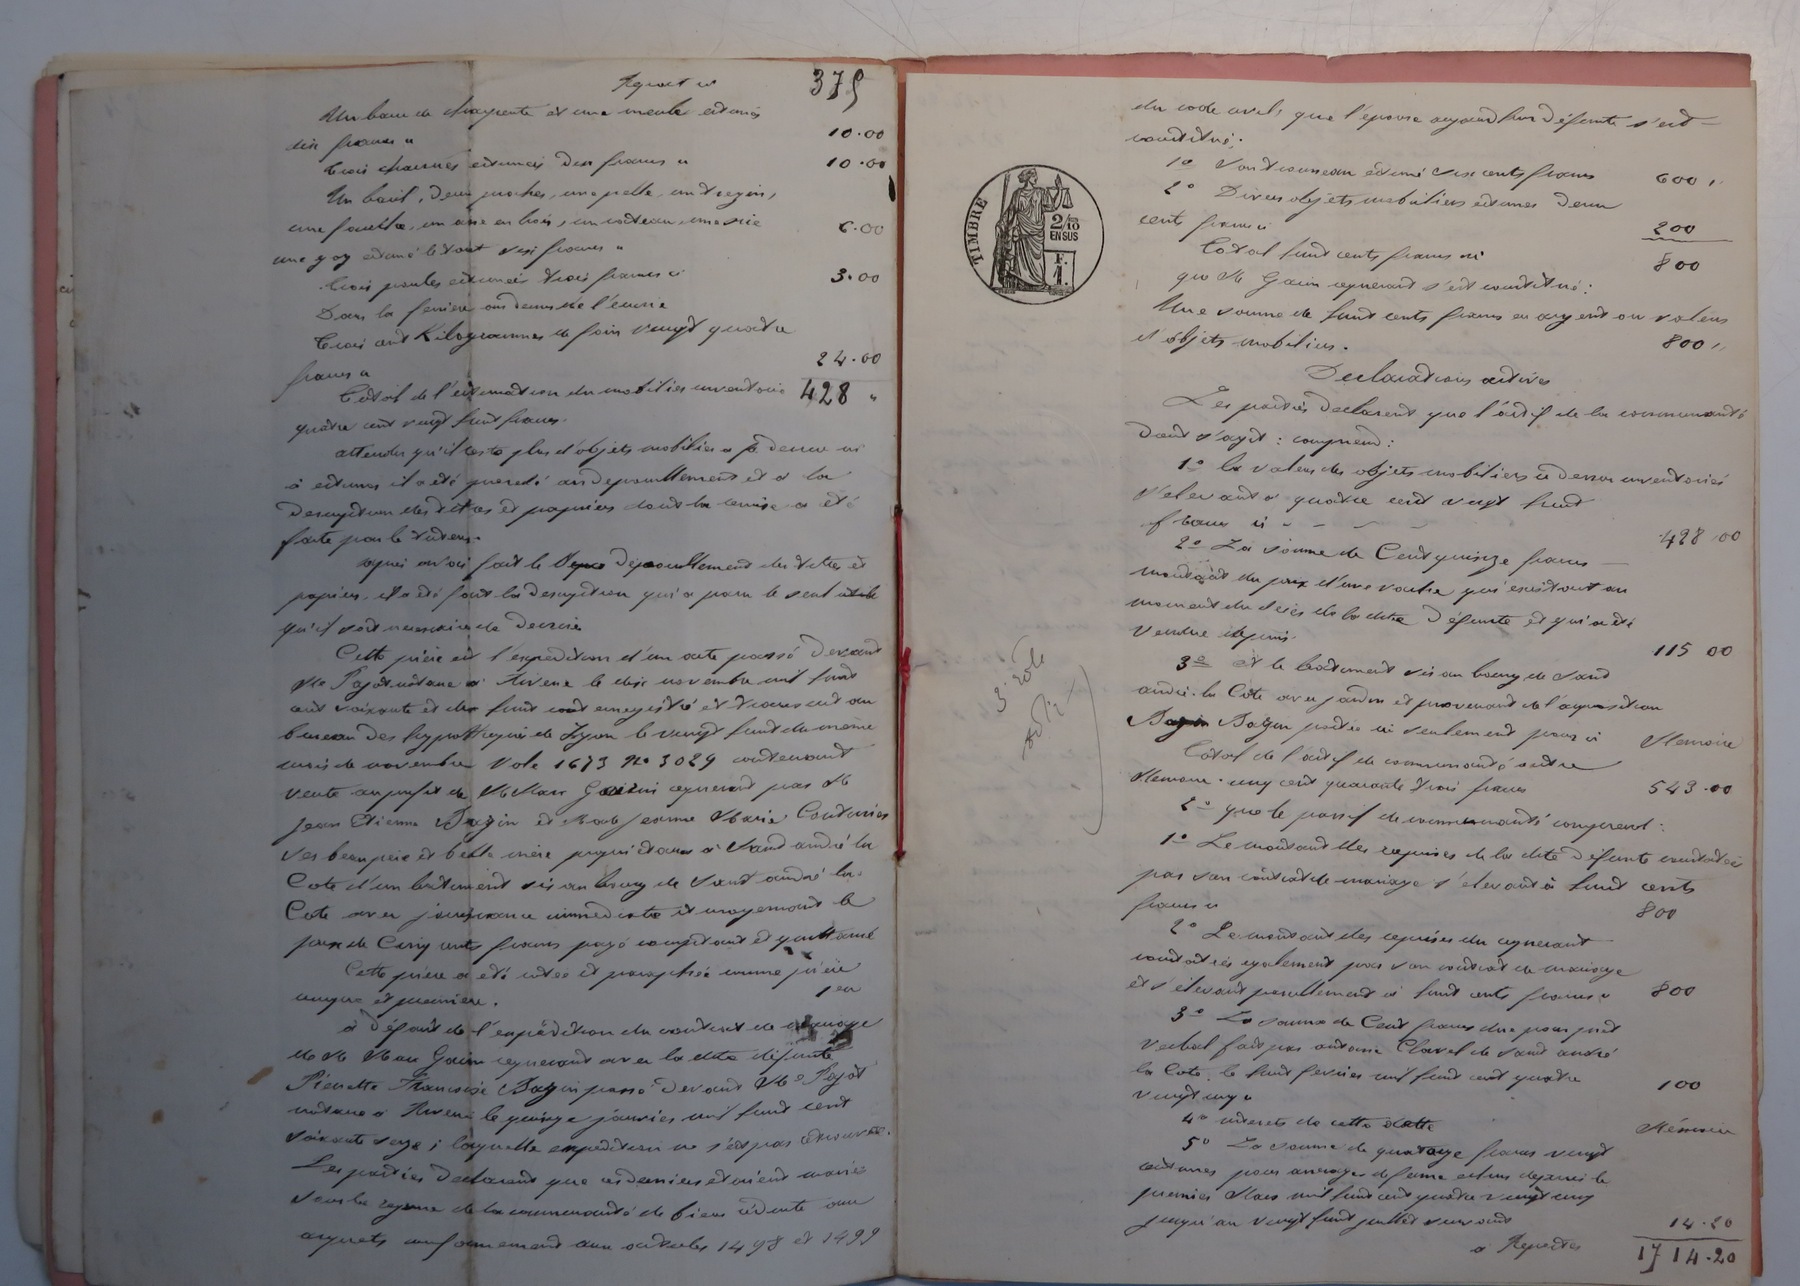 Report ci 375
Un banc de charpente et une meule estimés
dix francs ci 10.00
Trois charrues estimées dix francs ci 10.00
Un baril, deux pioches, une pelle, un trezin,
une faucille, un âne en bois, un couteau, une scie
une goy estimé le tout six francs ci 6.00
Trois poules estimées trois francs ci 3.00
Dans la fenière au dessus de l'écurie
Trois cent Kilogrammes de foin vingt quatre
francs ci 24.00
Total de l'estimation du mobilier inventorié 428 "
quatre cent vingt huit francs.
attendu qu'il reste plus d'objets mobiliers à
à estimer il a été procédé au depouillement et à la
description des titres et papiers dont la remise a été
faite par le tuteur.
après avoir fait le depouillement des titres et
papiers, il a été fait la description qui a paru le seul utile
qu'il soit nécessaire de décrire
Cette pièce est l'expédition d'un acte passé devant
Me Pajot notaire à Riverie le dix novembre mil huit
cent soixante et dix huit enregistré et transcrit au
bureau des hypothèques de Lyon le vingt huit du même
mois de novembre Vole 1673 No 3029 contenant
vente au profit de M Marc Gouin requerant par M
Jean Etienne Bazin et Made Jeanne Marie Couturier
ses beau père et belle mère propriétaires à Saint andré la
Cote d'un batiment sis au bourg de Saint andré la
Cote avec jouissance immédiate et moyennant le
prix de Cinq cents francs payé comptant et quittancé
Cette pièce a été cotée et paraphée comme pièce
unique et première. 1er
à défaut de l'expédition du contrat de mariage
de M Marc Gouin requerant avec la dite défunte
Pierrette Françoise Bazin passé devant Me Pajot
notaire à Riverie le quinze janvier mil huit cent
soixante seize; laquelle expédition ne s'est pas retrouvée.
Les parties declarent que ces derniers étaient mariés
sous le regime de la communauté de biens réduite aux
acquets conformement aux articles 1498 et 1499
du code civil, que l'épouse aujourd'hui défunte s'est
constitué:
1o Son trousseau estimé six cents francs 600 "
2o Divers objets mobiliers estimés deux
cents francs ci 200
Total huit cents francs ci 800
que M Gouin requerant s'est constitué:
Une somme de huit cents francs en argent ou valeurs
et objets mobiliers. 800 "
Declarations actives
Les parties declarent que l'actif de la communauté
dont s'agit: comprend:
1o la valeur des objets mobiliers ci dessus inventoriés
s'élevant à quatre cent vingt huit
francs ci 428.00
2o La somme de Cent quinze francs
montant du prix d'une vache qui existait au
moment du décès de la dite défunte et qui a été
vendue depuis. 115 00
3o et le batiment sis au bourg de Saint
andré la Cote avec jardin et provenant de l'acquisition
Bazin portée ici seulement pour ci Memoire
Total de l'actif de communauté outre
Memoire. cinq cent quarante trois francs 543.00
2o que le passif de communauté comprend:
1o Le montant des reprises de la dite défunte constatées
par son contrat de mariage s'élevant à huit cents
francs ci 800
2o Le montant des reprises du requerant
constatées egalement par son contrat de mariage
et s'élevant pareillement à huit cents francs ci 800
3o La somme de Cent francs due pour prêt
verbal fait par antoine Clavel de Saint andré
la Cote le huit fevrier mil huit cent quatre
vingt cinq ci 100
4o intérets de cette dette Mémoire
5o La somme de quatorze francs vingt
centimes pour arrerages de ferme echus depuis le
premier Mars mil huit cent quatre vingt cinq
jusqu'au vingt huit juillet suivant 14.20
à Reporter 1714.20
TIMBRE
2/10
EN SUS
F.
1.
3e rôle